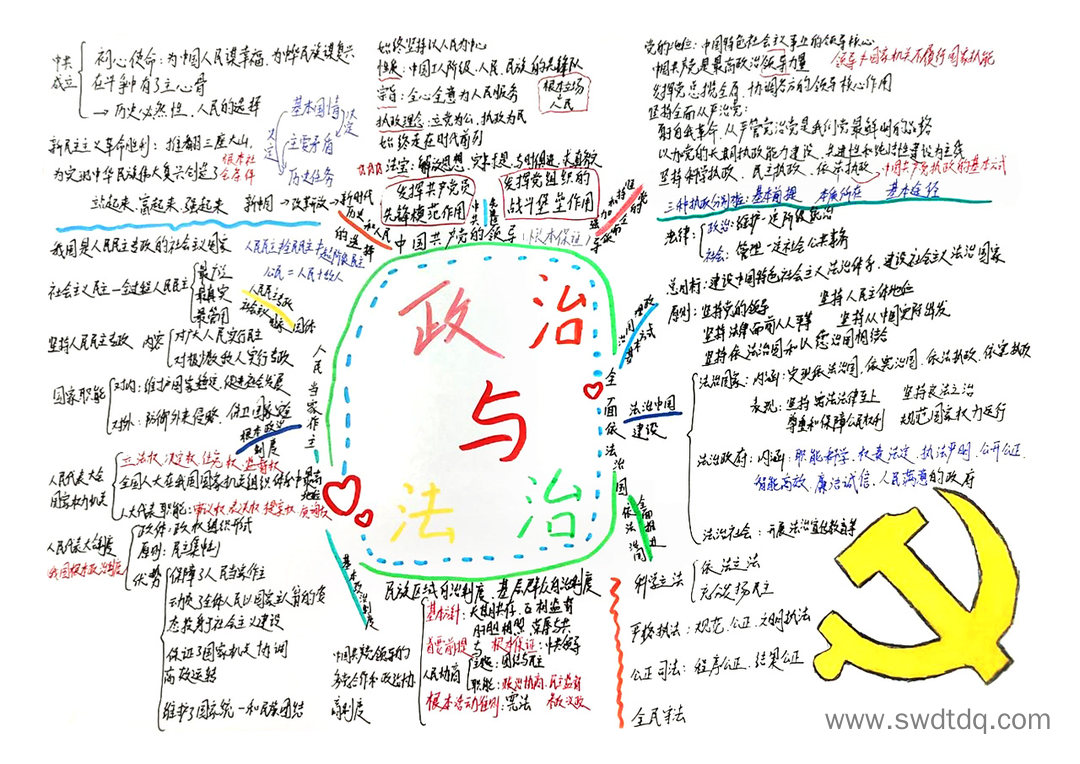 中共成立
初心使命:为中国人民谋幸福,为中华民族谋复兴
在斗争中有了主心骨
→ 历史必然性,人民的选择
新民主主义革命胜利:推翻三座大山,
为实现中华民族伟大复兴创造了
根本社会条件
基本国情
主要矛盾
历史任务
决定
决定
站起来,富起来,强起来
新中国 → 改革开放 → 新时代
历史和人民的选择
始终坚持以人民为中心
性质:中国工人阶级、人民、民族的先锋队
宗旨:全心全意为人民服务
根本立场
人民
执政理念:立党为公、执政为民
始终走在时代前列
法宝:解放思想 实事求是、与时俱进、求真务实
发挥共产党员
先锋模范作用
发挥党组织的
战斗堡垒作用
中国共产党的领导(根本保证)
党的地位:中国特色社会主义事业的领导核心
中国共产党是最高政治领导力量
领导≠国家机关不履行国家职能
发挥党总揽全局、协调各方的领导核心作用
坚持全面从严治党:
勇自我革命,从严管党治党是我们党最鲜明的品格
以加强党的长期执政能力建设、先进性和纯洁性建设为主线
坚持科学执政、民主执政、依法执政
中国共产党执政的基本方式
三种执政分别是:基本前提 本质所在 基本途径
法律:
政治:维护一定阶级统治
社会:管理一定社会公共事务
总目标:建设中国特色社会主义法治体系,建设社会主义法治国家
原则:坚持党的领导
坚持人民主体地位
坚持法律面前人人平等
坚持从中国实际出发
坚持依法治国和以德治国相结合
治国理政基本方式
全面依法治国
法治中国
建设
法治国家:内涵:实现依法治国,依宪治国,依法执政,依宪执政
表现:坚持宪法法律至上
坚持良法之治
尊重和保障公民权利
规范国家权力运行
法治政府:内涵:职能科学、权责法定、执法严明、公开公正、
智能高效、廉洁诚信、人民满意的政府
法治社会:开展法治宣传教育等
全面推进依法治国
科学立法
依法立法
民主
严格执法:规范、公正、文明执法
公正司法:程序公正、结果公正
全民守法
政治
与
法治
我国是人民民主专政的社会主义国家
社会主义民主—全过程人民民主
最广泛
最真实
最管用
公民=人民+敌人
坚持人民民主专政 内容
对广大人民实行民主
对极少数敌人实行专政
国家职能
对内:维护国家稳定,促进社会发展
对外:防御外来侵略,保卫国家安全
国体
根本政治制度
人民当家作主
人民代表大会
国家权力机关
立法权、决定权、任免权、监督权
全国人大在我国国家机关组织体系中最高地位
人大代表职能:审议权、表决权、提案权、质询权
人民代表大会制度
我国根本政治制度
政体:政权组织形式
原则:民主集中制
优势
保障了人民当家作主
动员了全体人民以国家主人翁的姿
态投身于社会主义建设
保证了国家机关协调
高效运转
维护了国家统一和民族团结
基本政治制度
民族区域自治制度、基层群众自治制度
中国共产党领导的
多党合作和政治协
商制度
基本方针:长期共存、互相监督
肝胆相照、荣辱与共
首要前提与根本保证:中共领导
人民政协
主题:团结与民主
职能:政治协商,民主监督
参政议政
根本活动准则:宪法
www.swdtdq.com